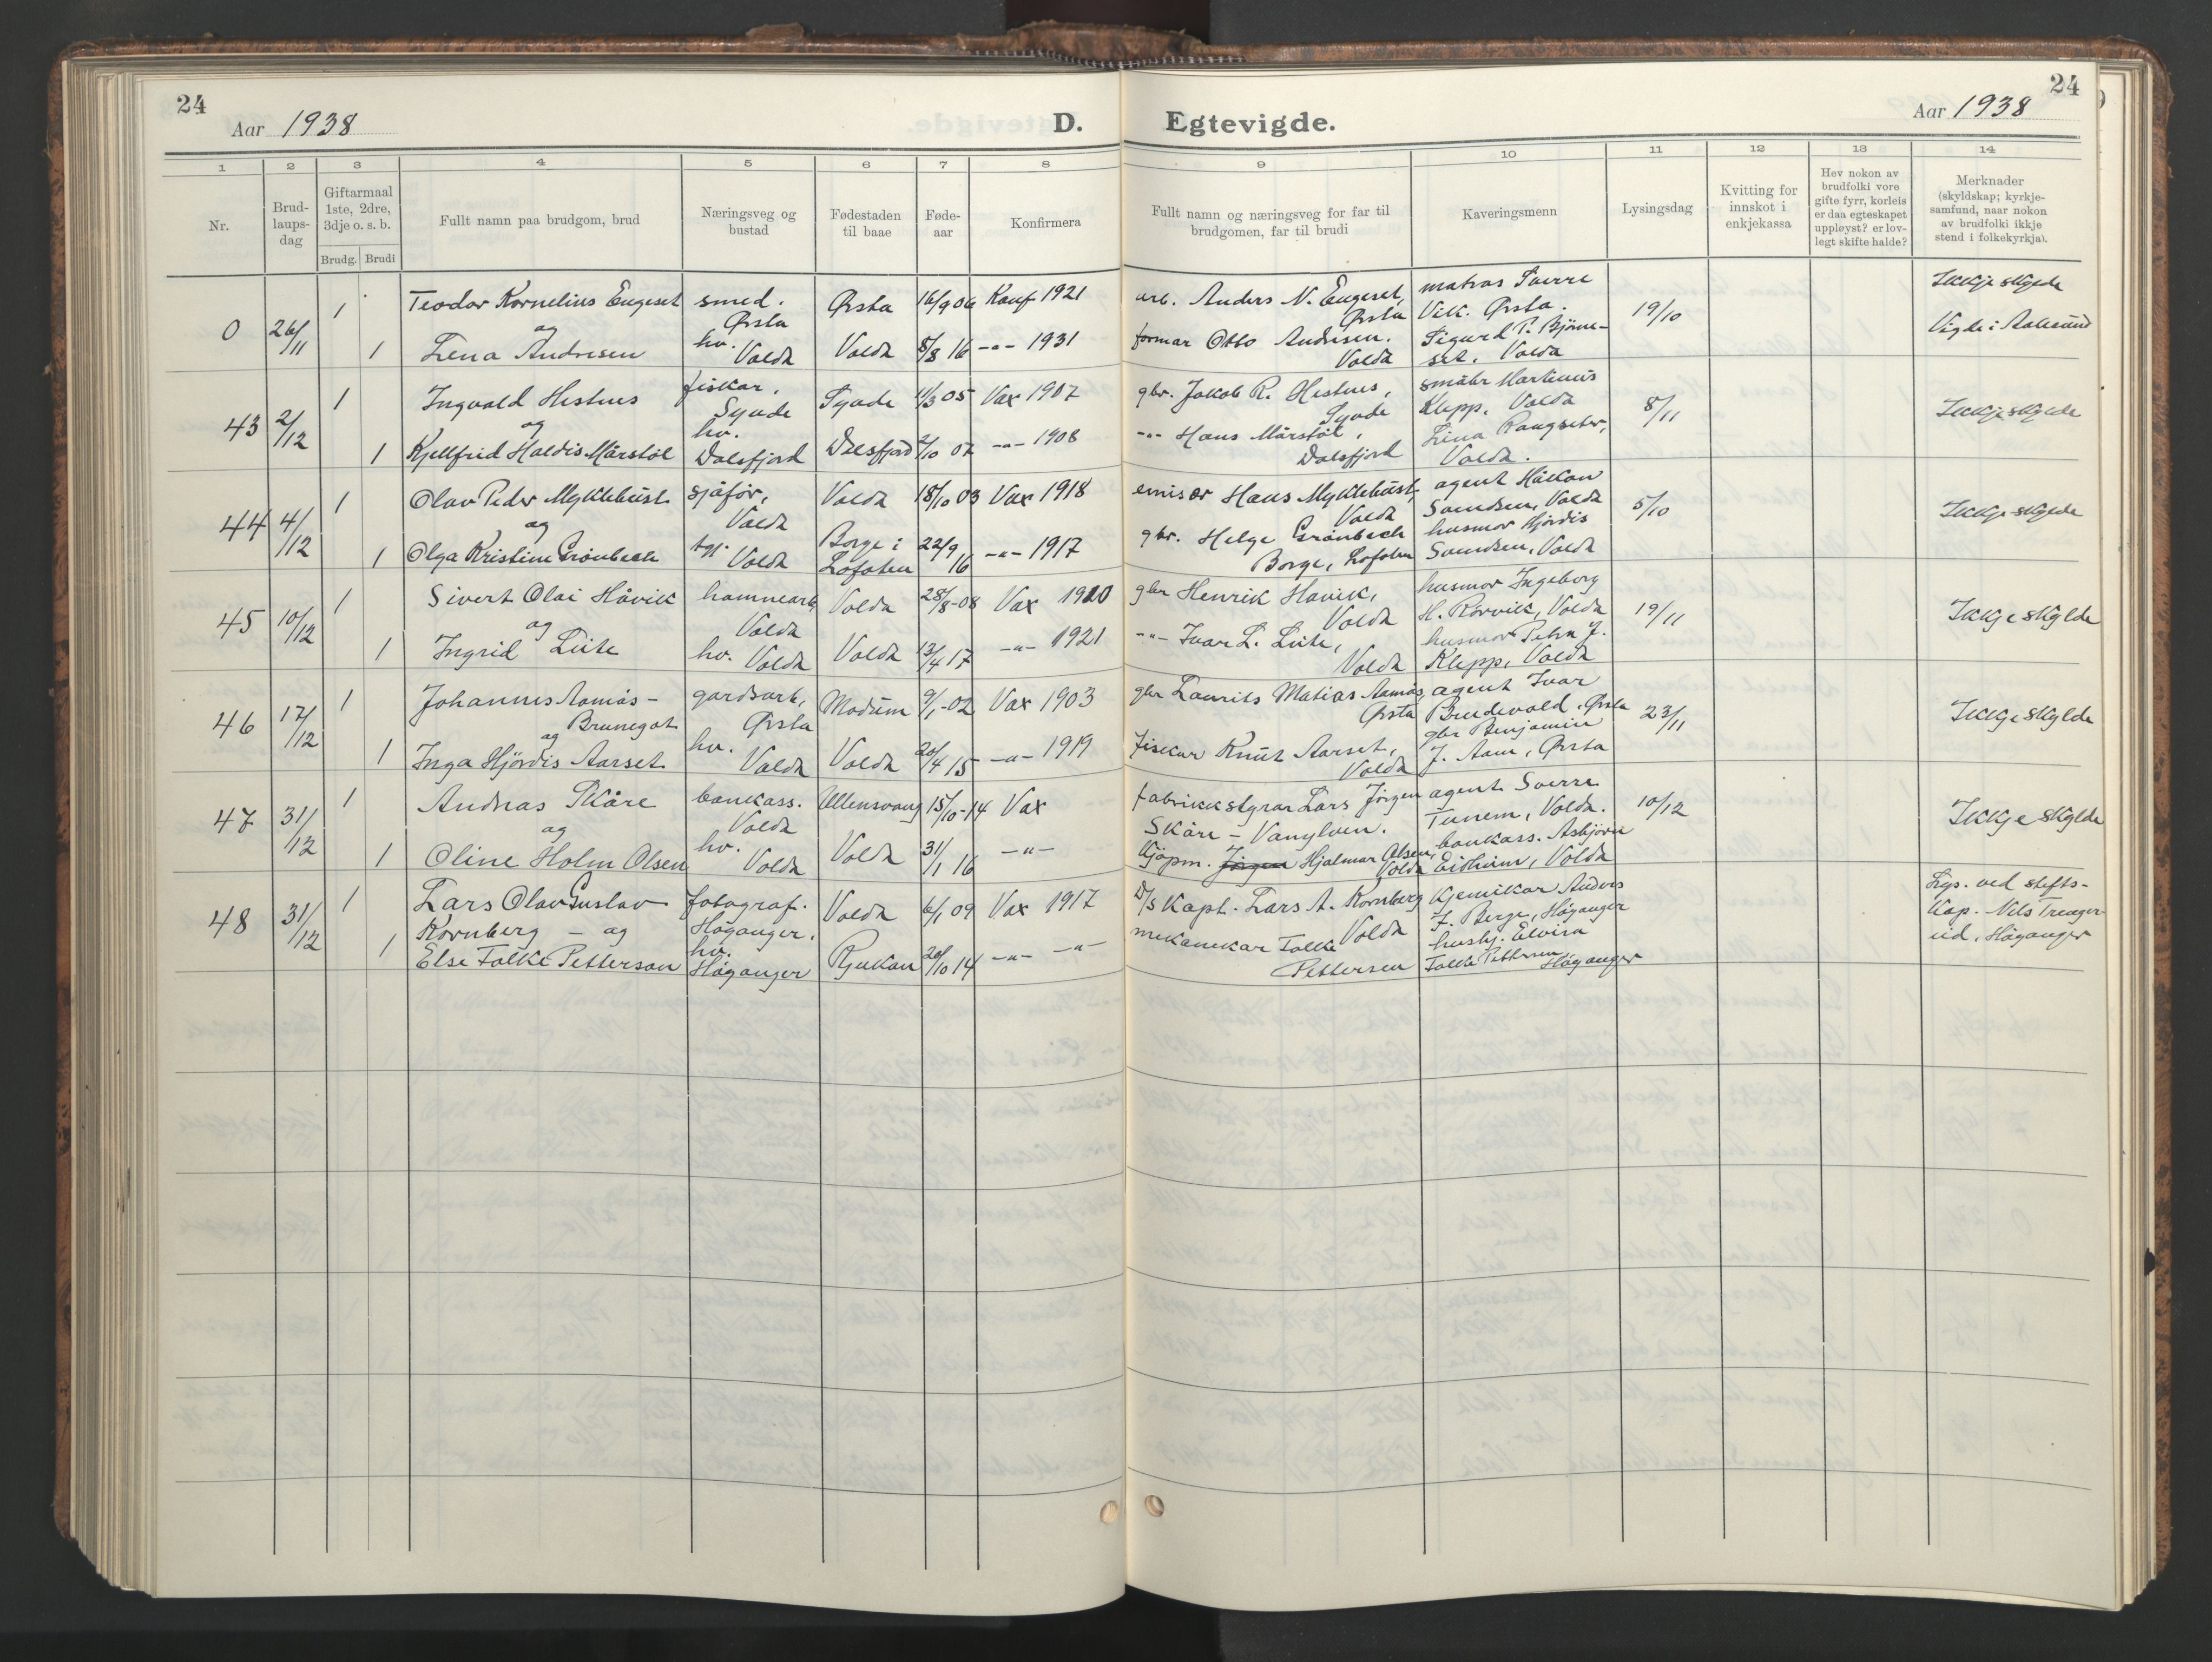 24
Aar 1938
D.
Egtevigde.
Aar 1938
24
1 2 3 4 5 6 7 8 9 10 11 12 13 14
Nr.
Brud-
laups-
dag
Giftarmaal
1ste, 2dre,
3dje o. s. b.
Brudg. Brudi
Fullt namn paa brudgom, brud
Næringsveg og
bustad
Fødestaden
til baae
Føde-
aar
Konfirmera
Fullt namn og næringsveg for far til
brudgomen, far til brudi
Kaveringsmenn
Lysingsdag
Kvitting for
innskot i
enkjekassa
Hev nokon av
brudfolki vore
gifte fyrr, korleis
er daa egteskapet
uppløyst? er lov-
legt skifte halde?
Merknader
(skyldskap; kyrkje-
samfund, naar nokon
av brudfolki ikkje
stend i folkekyrkja).
0 26/11 1 Teodor Kornelius Engeset smed. Ørsta Ørsta 16/9 06 Konf 1921 arb. Anders N. Engeset, Ørsta matros Sverre Vik. Ørsta. 19/10 Ikkje skylde
og
1 Lena Andresen hv. Volda Volda 8/8 16 -"- 1931 formar Otto Andresen. Volda Sigurd P. Bjørne-
set. Volda Vigde i Aalesund
43 2/12 1 Ingvald Hestnes fiskar, Syvde Syvde 4/3 05 Vax 1907 gbr. Jakob R. Hestnes, Syvde småbr Martinus Klepp, Volda 8/11 Ikkje skylde
og
1 Kjellfrid Haldis Mårstøl hv. Dalsfjord Dalsfjord 2/10 07 -"- 1908 -"- Hans Mårstøl, Dalsfjord Lina Rangseter, Volda.
44 4/12 1 Olav Peder Myklebust sjåfør, Volda Volda 18/10 03 Vax 1918 emisær Hans Myklebust, Volda agent Håkon Svendsen, Volda 5/10 Ikkje skylde
og
1 Olga Kristine Grønbech Volda Borge i Lofoten 22/9 16 -"- 1917 gbr. Helge Grønbech Borge, Lofoten husmor Hjördis Svendsen, Volda
45 10/12 1 Sivert Olai Håvik hamnearb, Volda Volda 28/8-08 Vax 1910 gbr Henrik Havik, Volda husmor Ingeborg H. Rørvik, Volda 19/11 Ikkje skylde
og
1 Ingrid Liite hv. Volda Volda 13/4 17 -"- 1921 -"- Ivar L. Liite, Volda husmor Petra J. Klepp, Volda
46 17/12 1 Johannes Aamås- Brunegot gardsarb, Ørsta Modum 9/1-02 Vax 1903 gbr Laurits Matias Aamås, Ørsta agent Ivar Brudevold, Ørsta 23/11 Ikkje skylde
og
1 Inga Hjördis Aarset hv. Volda Volda 20/4 15 -"- 1919 fiskar Knut Aarset, Volda gbr Benjamin J. Aam, Ørsta
47 31/12 1 Andreas Skåre bankass. Volda Ullensvang 15/10-14 Vax fabrikkstyrar Lars Jørgen Skåre - Vanylven. agent Sverre Tunem, Volda. 10/12 Ikkje skylde
og
1 Oline Holm Olsen hv. Volda Volda 31/1 16 -"- Kjøpm. Jørgen Hjalmar Olsen, Volda bankass. Asbjørn Eidheim, Volda
48 31/12 1 Lars Olav Gustav Kornberg - og fotograf. Høganger. Volda 6/1 09 Vax 1917 D/S Kapt. Lars A. Kornberg Volda Kjemikar Anders J. Berge, Høganger Lys. ved stifts-
kap. Nils Treager-
eid, Høganger
1 Else Falke Petterson hv. Høganger Rjukan 20/10 14 -"- -"- mekanikar Falke Pettersen husby. Elvira Falke Pettersen Høganger